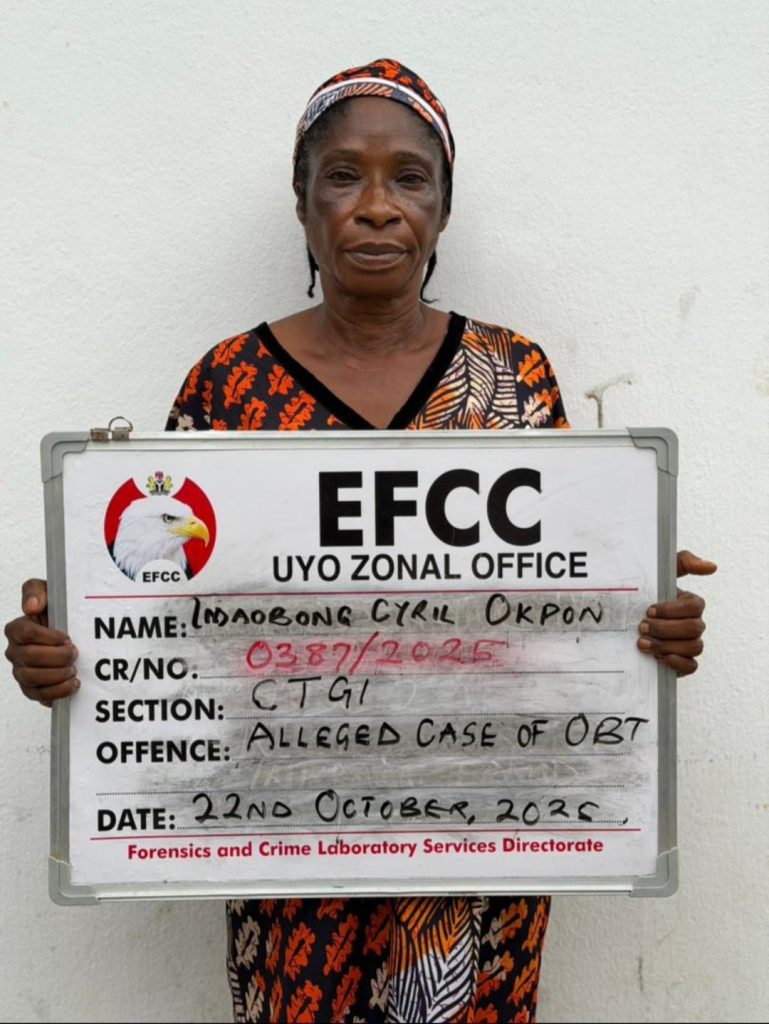 EFCC
UYO ZONAL OFFICE
EFCC
NAME: IMAOBONG CYRIL OKPON
CR/NO. 0387/2025
SECTION: CTGI
OFFENCE: ALLEGED CASE OF OBT
DATE: 22ND OCTOBER, 2025.
Forensics and Crime Laboratory Services Directorate